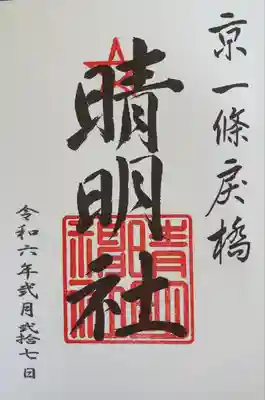 京一條戻橋
晴明社
晴明神社
令和六年弐月弐拾七日